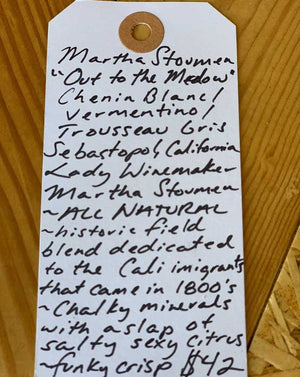 Martha Stoumen
"Out to the Medow"
Chenin Blanc/
Vermentino/
Trousseau Gris
Sebastopol, California
Lady Winemaker
Martha Stoumen
~ALL NATURAL
~historic field
blend dedicated
to the Cali imigrants
that came in 1800's
~Chalky minerals
with a slap of
salty sexy citrus
~funky crisp $42